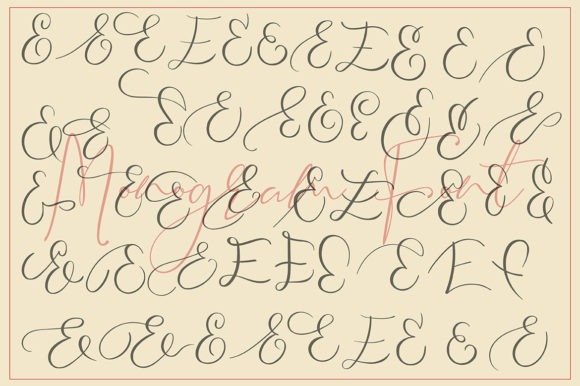 E E E E E E E E E E E
E E E E E E E E E E
Monogram Font
E E E E E E E E E
E E E E E E E E E
E E E E E E E E E